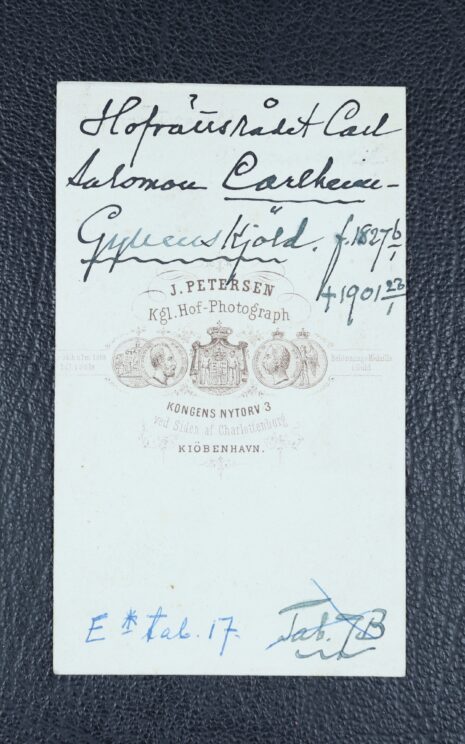 Hofrättsrådet Carl
Salomon Carlheim-
Gyllensköld. f. 1827 6/1
† 1901 23/1
J. PETERSEN
Kgl. Hof-Photograph
KONGENS NYTORV 3
ved Siden af Charlottenborg
KIÖBENHAVN.
E * tab. 17.
Tab. 7B